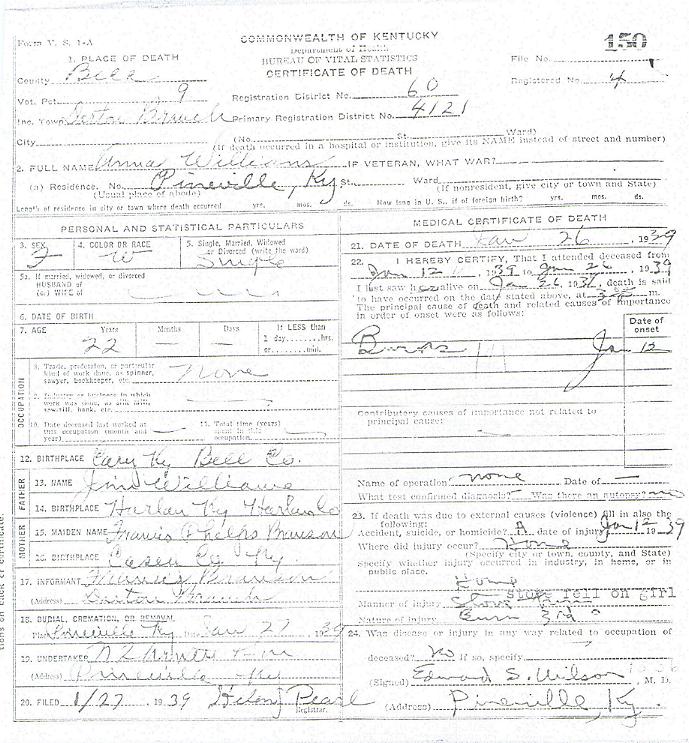 Form V. S. 1-A
COMMONWEALTH OF KENTUCKY
Department of Health
BUREAU OF VITAL STATISTICS
CERTIFICATE OF DEATH
150
File No.
Registered No. 4
1. PLACE OF DEATH
County Bell
Vot. Pct. 9
Registration District No. 60
Inc. Town Branch Primary Registration District No. 4121
City (No. St. Ward)
(If death occurred in a hospital or institution, give its NAME instead of street and number)
2. FULL NAME Anna Williams IF VETERAN, WHAT WAR?
(a) Residence. No. Pineville, Ky St. Ward.
(Usual place of abode) (If nonresident, give city or town and State)
Length of residence in city or town where death occurred yrs. mos. ds. How long in U. S., if of foreign birth? yrs. mos. ds.
PERSONAL AND STATISTICAL PARTICULARS
3. SEX F
4. COLOR OR RACE W
5. Single, Married, Widowed or Divorced (write the word) Single
5a. If married, widowed, or divorced
HUSBAND of
(or) WIFE of
6. DATE OF BIRTH
7. AGE Years Months Days If LESS than
1 day........hrs.
or........min.
22 — —
OCCUPATION
8. Trade, profession, or particular
kind of work done, as spinner,
sawyer, bookkeeper, etc. none
9. Industry or business in which
work was done, as silk mill,
sawmill, bank, etc. —
10. Date deceased last worked at
this occupation (month and
year) —
11. Total time (years)
spent in this
occupation —
12. BIRTHPLACE Cary Ky Bell Co.
FATHER
13. NAME Jim Williams
14. BIRTHPLACE Harlan Ky Harlan Co
MOTHER
15. MAIDEN NAME Francis Phelps Brunson
16. BIRTHPLACE Casey Co. Ky
17. INFORMANT Brunson
(Address) Branch
18. BURIAL, CREMATION, OR REMOVAL
Place Pineville Ky Date Jan 27 1939
19. UNDERTAKER
(Address) Pineville Ky
20. FILED 1/27 1939 Pearl
Registrar.
MEDICAL CERTIFICATE OF DEATH
21. DATE OF DEATH Jan 26, 1939
22. I HEREBY CERTIFY, That I attended deceased from
Jan 12, 1939 to Jan 26, 1939
I last saw her alive on Jan 26, 1939, death is said
to have occurred on the date stated above, at m.
The principal cause of death and related causes of importance
in order of onset were as follows:
Date of
onset
Burns Jan 12
Contributory causes of importance not related to
principal cause:
Name of operation none Date of —
What test confirmed diagnosis? — Was there an autopsy? no
23. If death was due to external causes (violence) fill in also the
following:
Accident, suicide, or homicide? A date of injury Jan 12 1939
Where did injury occur? Home
(Specify city or town, county, and State)
Specify whether injury occurred in industry, in home, or in
public place.
Home
Manner of injury Stove fell on girl
Nature of injury Burn 3rd °
24. Was disease or injury in any way related to occupation of
deceased? No If so, specify
(Signed) Edward S. Wilson, M. D.
(Address) Pineville, Ky.